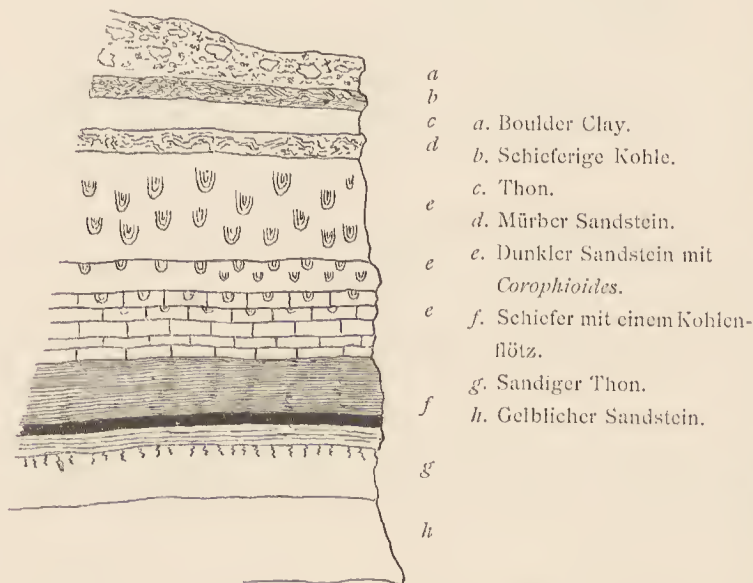 a
b
c
d
e
e
e
f
g
h
a. Boulder Clay.
b. Schieferige Kohle.
c. Thon.
d. Mürber Sandstein.
e. Dunkler Sandstein mit
Corophioides.
f. Schiefer mit einem Kohlen-
flötz.
g. Sandiger Thon.
h. Gelblicher Sandstein.